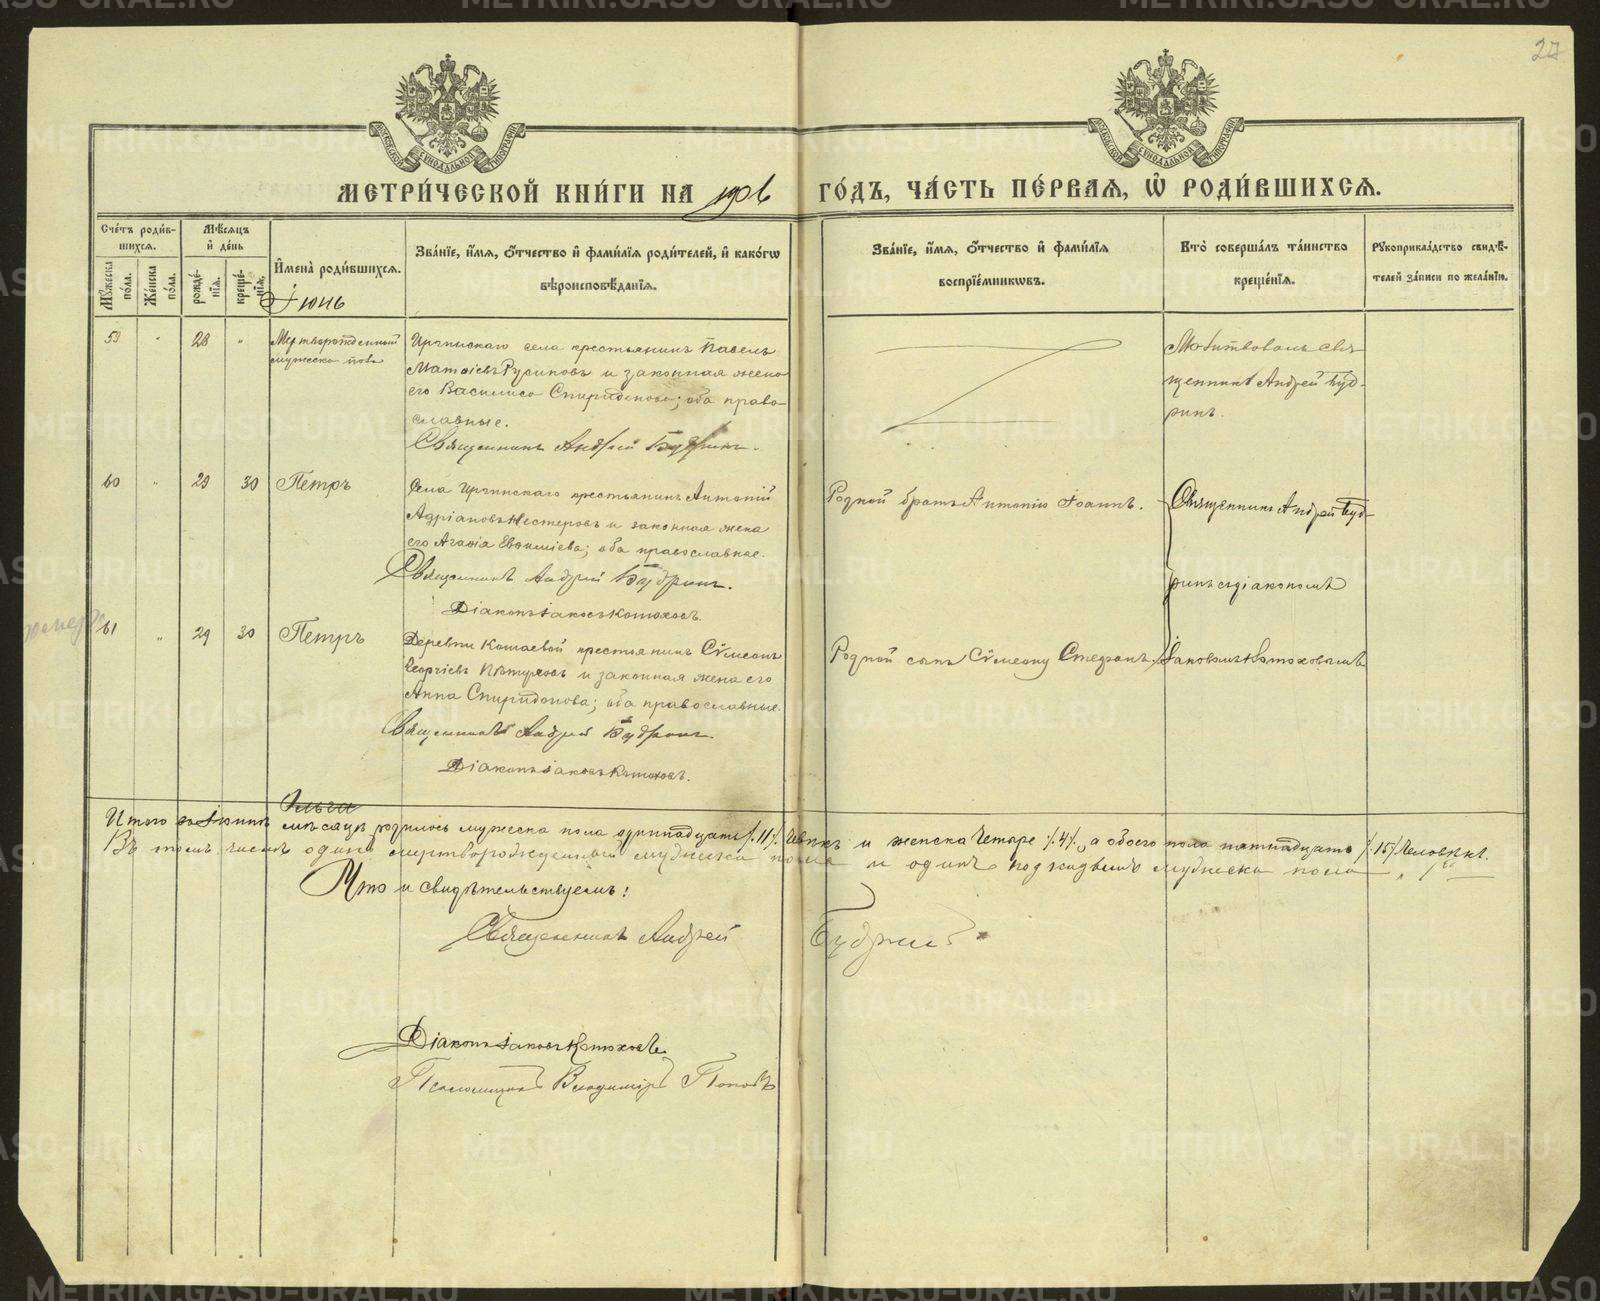 27
МОСКОВСКОЙ СѴНОДАЛЬНОЙ ТИПОГРАФІИ
МОСКОВСКОЙ СѴНОДАЛЬНОЙ ТИПОГРАФІИ
МЕТРИ́ЧЕСКОЙ КНИ́ГИ НА 1906 ГО́ДЪ, ЧА́СТЬ ПЕ́РВАЯ, Ѡ҆ РОДИ́ВШИХСЯ.
Сче́тъ роди́в-
шихся.
Му́жеска по́ла.
Же́нска по́ла.
Мѣ́сяцъ
и҆ де́нь
рожде́-
нїя.
креще́-
нїя.
И҆мена̀ роди́вшихся.
Іюнь
Зва́нїе, и҆́мя, ѻ҆́тчество и҆ фами́лїя роди́телей, и҆ како́гѡ
вѣроисповѣ́данїя.
Зва́нїе, и҆́мя, ѻ҆́тчество и҆ фами́лїя
воспрїе́мникѡвъ.
Кто̀ соверша́лъ та́инство
креще́нїя.
Рꙋкоприкла́дство свидѣ́-
телей за́писи по жела́нїю.
59 " 28 " Мертворожденный
мужеска пола
Иргинскаго села крестьянинъ Павелъ
Матѳіевъ Русиновъ и законная жена
его Василиса Спиридонова; оба право-
славные.
Священникъ Андрей Будринъ.
Молитвовалъ свя
щенникъ Андрей Буд-
ринъ.
60 " 29 30 Петръ
Села Иргинскаго крестьянинъ Антоній
Адріановъ Нестеровъ и законная жена
его Агаѳія Евѳиміева; оба православные.
Священникъ Андрей Будринъ.
Діаконъ Іаковъ Катюховъ.
Родной братъ Антонію Іоаннъ.
Священникъ Андрей Буд-
ринъ съ діакономъ
Іаковомъ Катюховымъ
61 " 29 30 Петръ
Деревни Кошаевой крестьянинъ Сѵмеонъ
Георгіевъ Пѣтуховъ и законная жена его
Анна Спиридонова; оба православные.
Священникъ Андрей Будринъ.
Діаконъ Іаковъ Катюховъ.
Родной сынъ Сѵмеону Стефанъ.
Итого въ Іюнѣ мѣсяцѣ родилось мужеска пола одиннадцать /.11/. человѣкъ и женска четыре /.4/., а обоего пола пятнадцать /.15/ человѣкъ.
Въ томъ числѣ одинъ мертворожденный мужеска пола и одинъ подкидышъ мужеска пола
Что и свидѣтельствуемъ:
Священникъ Андрей Будринъ
Діаконъ Іаковъ Катюховъ.
Псаломщикъ Владиміръ Поповъ
METRIKI.GASO-URAL.RU